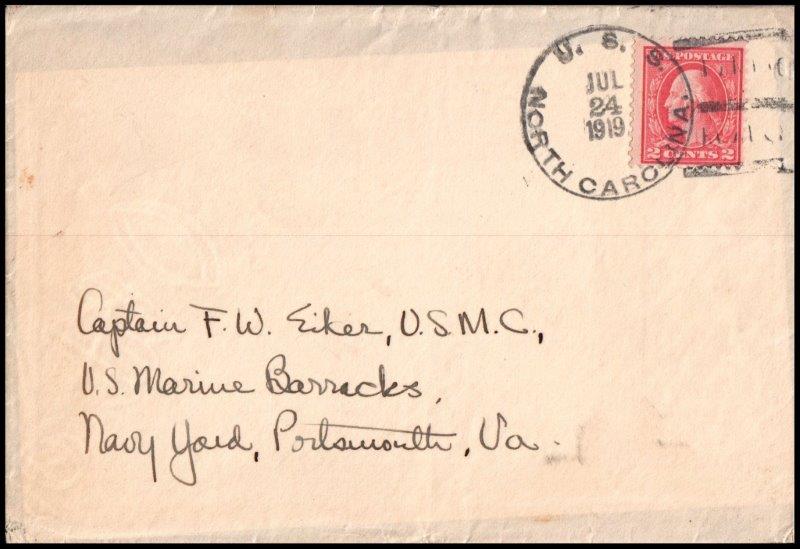 U. S. S.
JUL
24
1919
NORTH CAROLINA.
U.S. POSTAGE
2 CENTS 2
Captain F. W. Eiker, U.S.M.C.,
U.S. Marine Barracks,
Navy Yard, Portsmouth, Va.